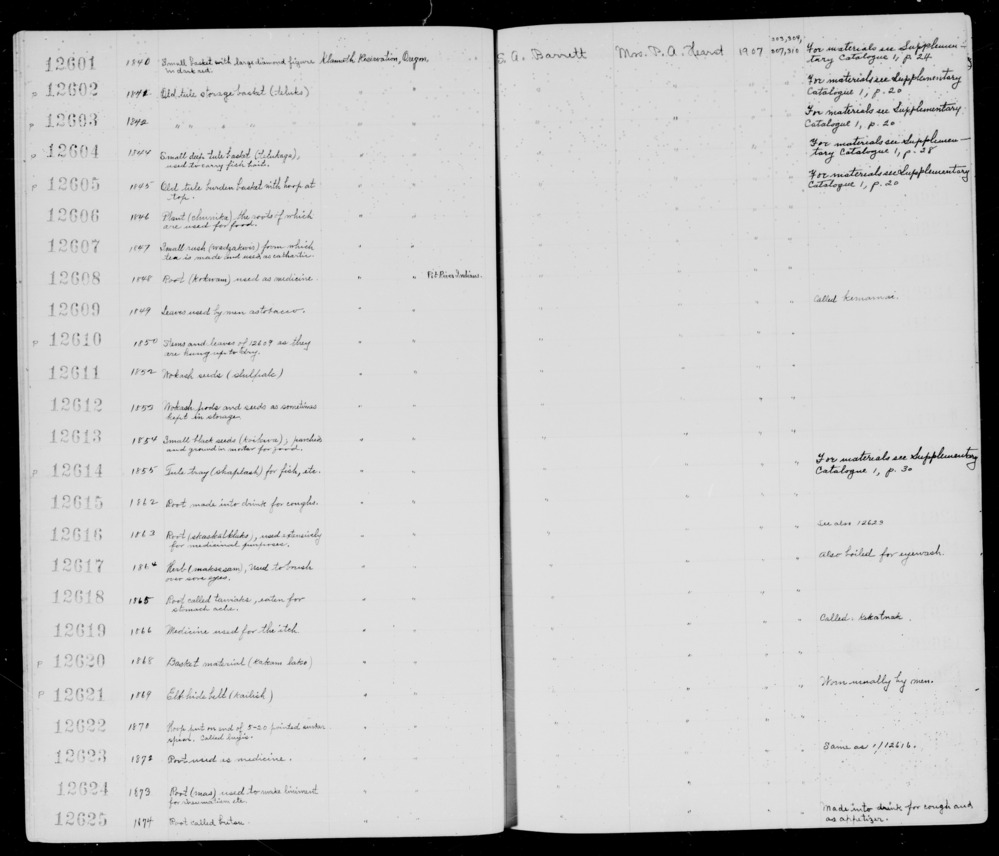 12601 1840 Small basket with large diamond figure in dark red. Klamath Reservation, Oregon. S. A. Barrett Mrs. P. A. Heard 1907 203,204, 207,210 For materials see Supplemen-
tary Catalogue 1, p. 24
P 12602 1841 Old tule storage basket For materials see Supplementary
Catalogue 1, p. 20
P 12603 1842 " " " " For materials see Supplementary
Catalogue 1, p. 20
P 12604 1844 Small deep tule basket
used to carry fish bait. For materials see Supplemen-
tary Catalogue 1, p. 28
P 12605 1845 Old tule burden basket with hoop at
top. For materials see Supplementary
Catalogue 1, p. 20
12606 1846 Plant the roots of which
are used for food.
12607 1847 Small rush form which
tea is made and used as cathartic.
12608 1848 Root (kokwam) used as medicine. " " Pit River Indians.
12609 1849 Leaves used by men as tobacco. Called kemamai.
P 12610 1850 Stems and leaves of 12609 as they
are hung up to dry.
12611 1852 Wokash seeds
12612 1853 Wokash pods and seeds as sometimes
kept in storage.
12613 1854 Small black seeds parched
and ground in mortar for food.
P 12614 1855 Tule tray (shaplash) for fish, etc. For materials see Supplementary
Catalogue 1, p. 30
12615 1862 Root made into drink for coughs.
12616 1863 Root used extensively
for medicinal purposes. See also 12623
12617 1864 Herb (maksesam), used to brush
over sore eyes. Also boiled for eyewash.
12618 1865 Root called eaten for
stomach ache.
12619 1866 Medicine used for the itch Called kakatnak.
P 12620 1868 Basket material
P 12621 1869 Elk hide belt (kailish) Worn usually by men.
12622 1871 Hoop put on end of pointed
spear. Called
12623 1872 Root used as medicine. Same as 1/12616.
12624 1873 Root used to make liniment
for rheumatism etc.
12625 1874 Root called Made into drink for cough and
as appetizer.